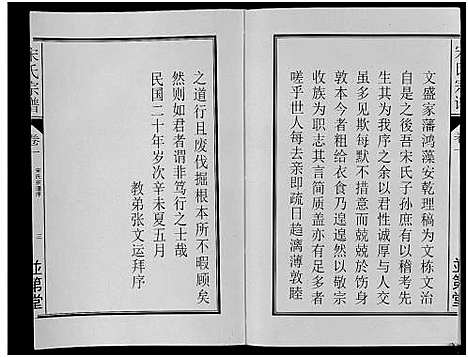 文盛家藩鸿藻安乾理稿为文栋文治
自是之後吾宋氏子孙庶有以稽考先
生其为我序之余以君性诚厚与人交
虽多见欺每默不措意而兢兢於饬身
敦本今者粗给衣食乃遑遑然以敬宗
收族为职志其言简质盖亦有足多者
嗟乎世人每去亲即疏日趋漓薄敦睦
之道行且废伐掘根本所不暇顾矣
然则如君者谓非笃行之士哉
民国二十年岁次辛未夏五月
教弟张文运拜序
宋氏宗谱
卷一
宋氏宗谱序
三
並第堂
並第堂